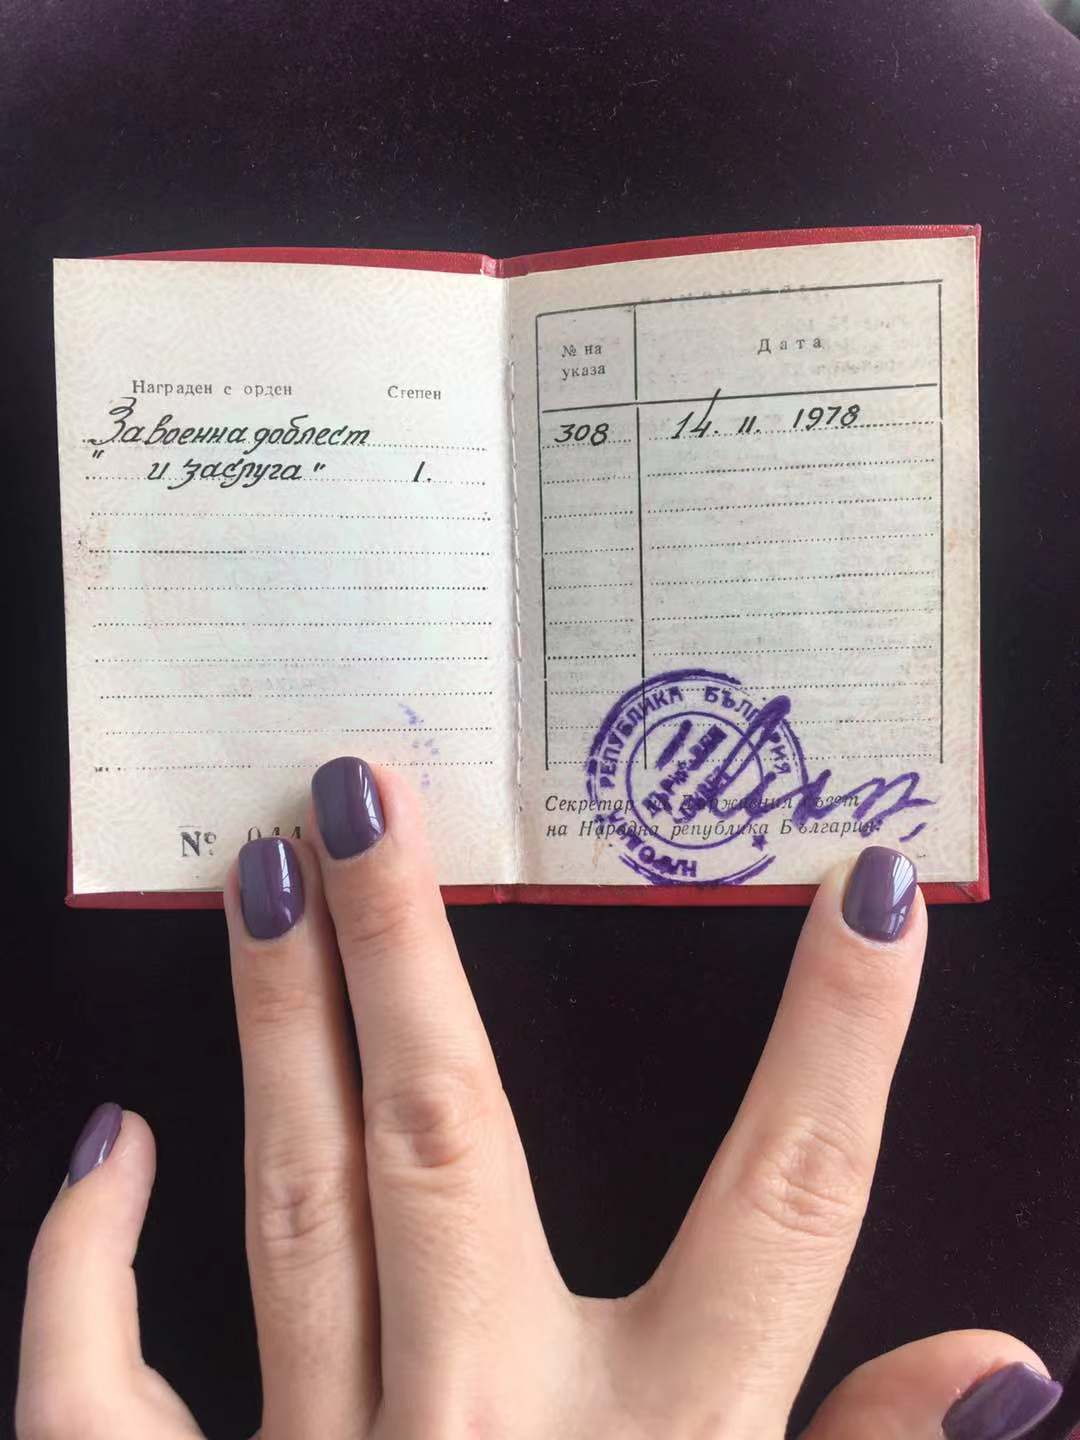 Награден с орден Степен
„За военна доблест
и заслуга" I.
№ 044
№ на указа
Дата
308 14. II. 1978
НАРОДНА РЕПУБЛИКА БЪЛГАРИЯ
Секретар на Държавния съвет
на Народна република България: